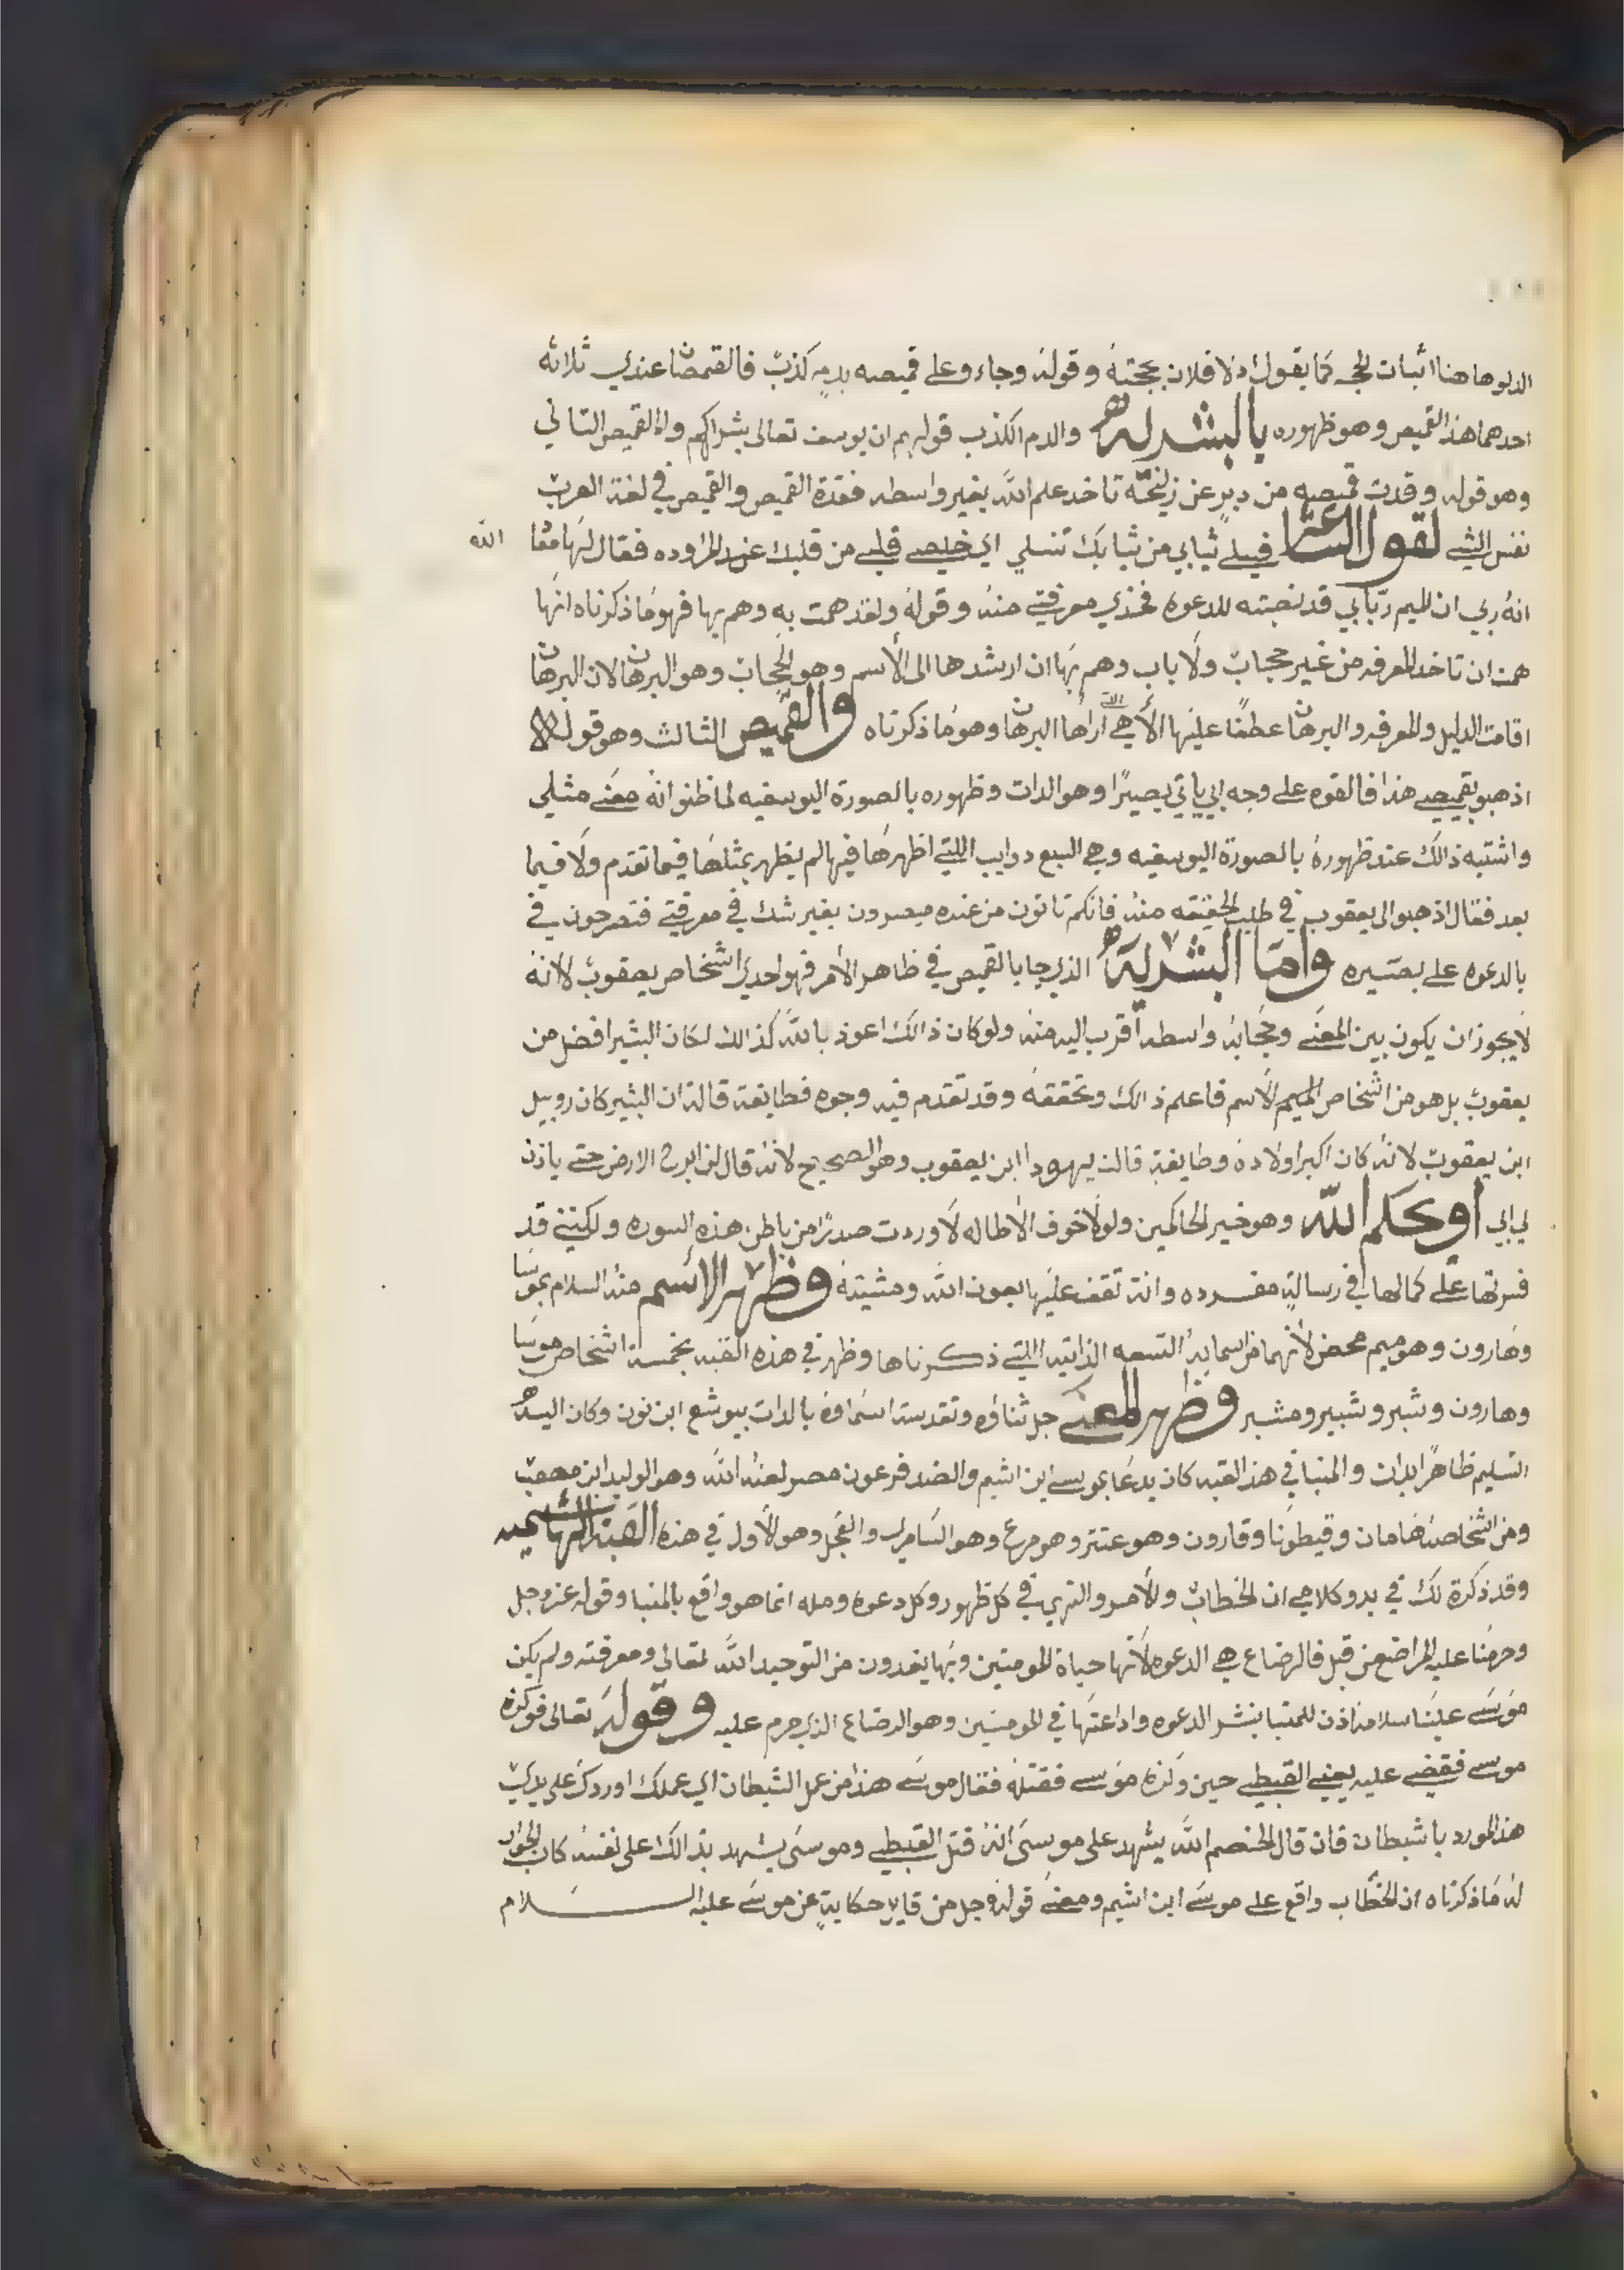 الدلوها هنا اثبات الحجه كما يقول ادلا فلان بحجته وقوله وجاء وعلى قميصه بدمٍ كذبٍ فالقمصان عندي ثلاثه
احدهما هذا القميص وهو ظهوره بالبشريه والدم الكذب قولهم ان يوسف تعالى بشراً كهم واما القميص الثاني
وهو قوله وقدت قميصه من دبرٍ عن زليخه تاخد علم الله بغير واسطه فقدة القميص والقميص في لغة العرب
نفس الشي لقول الشاعر فسلي ثيابي من ثيابك تنسلي اي خلصي قلبي من قلبك عند المراوده فقال لها معاذ الله
انه ربي ان للميم ربّاني قد نصبته للدعوه فخذي معرفتي منه وقوله ولقد همت به وهم بها فهو ما ذكرناه انها
همت ان تاخد المعرفه من غير حجاب ولا باب وهم بها ان ارشدها الى الأسم وهو الحجاب وهو البرهان لان البرهان
اقامت الدليل والمعرفه والبرهان عطفاً عليها الأهي اراها البرهان وهو ما ذكرناه والقميص الثالث وهو قوله
اذهبو بقميصي هذا فالقوه على وجه ابي ياتي بصيرًا وهو الدات وظهوره بالصورة اليوسفيه لما ظنو انه معني مثلي
واشتبه ذالك عند ظهوره بالصورة اليوسفيه وهي السبع دوايب اللتي اظهرها فيها لم يظهر بمثلها فيما تقدم ولا فيما
بعد فقال اذهبوا الى يعقوب في طلب الحقيقه منه فانكم تاتون من عنده مبصرون بغير شك في معرفتي فتصرحون في
بالدعوه على بصيره واما البشريه الذي جا بالقميص في ظاهر الأمر فهو احدي اشخاص يعقوب لأنه
لا يجوز ان يكون بين المعنى وحجابه واسطه اقرب اليه منه ولو كان ذالك اعوذ بالله كذالك لكان البشير افضل من
يعقوب بل هو من اشخاص الميم الأسم فاعلم ذالك وتحققه وقد تقدم فيه وجوه فطايفة قالة ان البشير كان روبيل
ابن يعقوب لانه كان اكبر اولاده وطايفة قالت يهودا ابن يعقوب وهو الصحيح لانه قال لن ابرح الارض حتى ياذن
لي ابي أو يحكم الله وهو خير الحاكمين ولولا خوف الأطاله لأوردت صدرًا من باطن هذه السوره ولكنني قد
فسرتها على كمالها في رسالةٍ مفرده وانت تقف عليها بعون الله ومشيته وظهر الاسم منه السلام بموسا
وهارون وهو ميم محض لأنهما من اسمايه التسعه الذاتيه اللتي ذكرناها وظهر في هذه القبه بخمسة اشخاص موسا
وهارون وشبر وشبير ومشبر وظهر المعنى جل ثناؤه وتقدست اسماوه بالدات بيوشع ابن نون وكان اليه
التسليم ظاهرًا بدات والمنبا في هذا القبه كان يدعا بموسي ابن اشيم والضد فرعون مصر لعنه الله وهو الوليد ابن مصعب
ومن اشخاصه هامان وقيطونا وقارون وهو عنتر وهو مرع وهو السامري والعجل وهو الأول في هذه القبة الهاشميه
وقد ذكرة لك في بدو كلامي ان الخطاب والأمر والنهي في كل ظهور وكل دعوه ومله انما هو واقع بالمنبا وقوله عز وجل
وحرمنا عليه المراضع من قبل فالرضاع هي الدعوه لأنها حياة المومنين وبها يغدون من التوحيد الله تعالى ومعرفته ولم يكن
موسى علينا سلامه اذن للمنبا بنشر الدعوه واداعتها في المومنين وهو الرضاع الذي حرم عليه وقوله تعالى فوكزه
موسى فقضي عليه يعني القبطي حين وكزه موسى فقتله فقال موسى هذا من عمل الشيطان اي عملك اوردك على يدي
هذا المورد يا شيطان فان قال الخصم الله يشهد على موسى انه قتل القبطي وموسى يشهد بذالك على نفسه كان الجواب
له ما ذكرناه ان الخطاب واقع على موسى ابن اشيم ومعنى قوله وجل من قايل حكايةٍ عن موسى عليه السلام